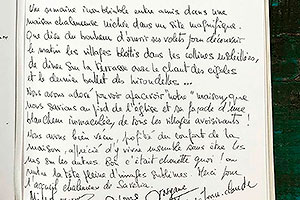 Une semaine inoubliable entre amis dans une
maison chaleureuse nichée dans un site magnifique.
Que dire du bonheur d'ouvrir ses volets pour découvrir
le matin les villages blottis dans les collines ensoleillées,
de dîner sur la terrasse avec le chant des cigales
et le dernier ballet des hirondelles...
Nous avons adoré pouvoir apercevoir "notre" maison, que
nous savions au pied de l'église et sa façade d'une
blancheur immaculée, de tous les villages avoisinants !
Nous avons bien vécu, profité du confort de la
maison, apprécié d'y vivre ensemble sans être les
uns sur les autres. Bon c'était chouette quoi ! on
rentre la tête pleine d'images sublimes. Merci pour
l'accueil chaleureux de